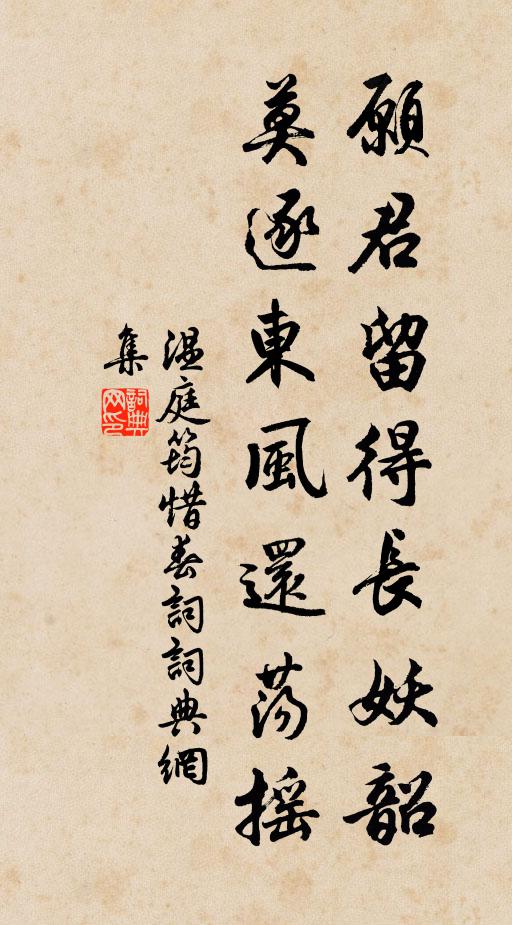 願君留得長妖韶
莫逐東風還蕩摇
温庭筠惜春詞詞典網
集
詞典网印